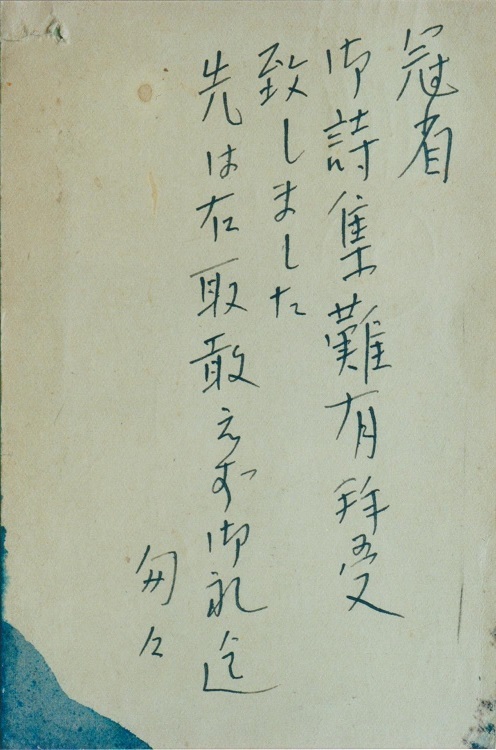 冠省
御詩集難有拝受
致しました
先は右取敢えず御礼迄
匆々